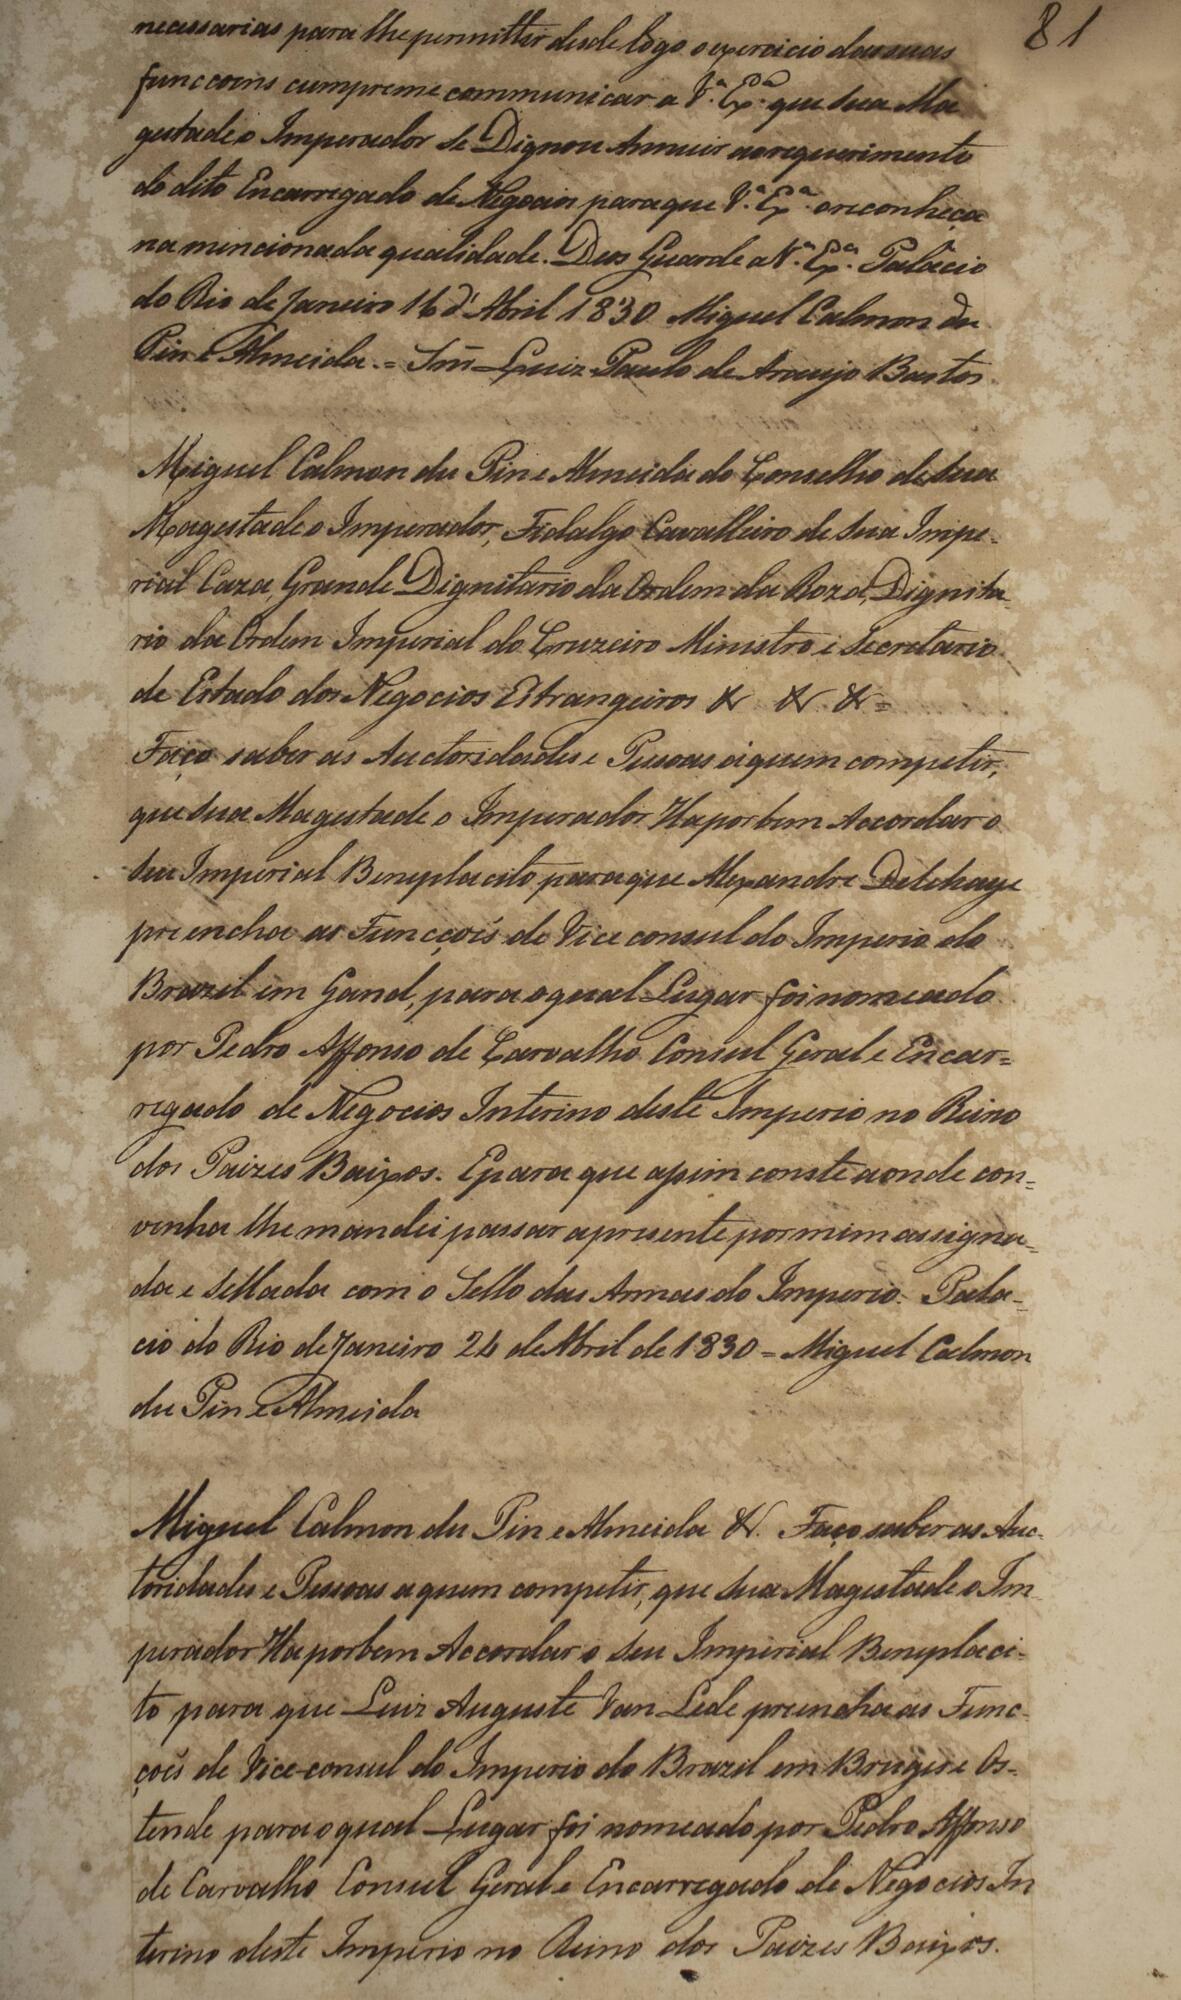 81
necessarias para lhe permittir desde logo o exercicio das suas
funccoens cumpreme communicar a V.ª Ex.ª que Sua Ma
gestade o Imperador se Dignou Annuir ao requerimento
do dito Encarregado de Negocios para que V.ª Ex.ª o reconheça
na mencionada qualidade. Deos Guarde a V.ª Ex.ª Palacio
do Rio de Janeiro 16 d'Abril 1830 Miguel Calmon du
Pin e Almeida. = Snr̃ Luiz Paulo de Araujo Bastos
Miguel Calmon du Pin e Almeida do Conselho de Sua
Magestade o Imperador, Fidalgo Cavalleiro de Sua Impe-
rial Caza, Grande Dignitario da Ordem da Roza, Dignita
rio da Ordem Imperial do Cruzeiro Ministro e Secretario
de Estado dos Negocios Estrangeiros & & & =
Faço saber as Auctoridades e Pessoas a quem competir,
que Sua Magestade o Imperador Ha por bem Accordar o
Seu Imperial Beneplacito para que Alexandre Delehaye
preencha as Funcçoẽs de Vice consul do Imperio do
Brazil em Gand, para o qual Lugar foi nomeado
por Pedro Affonso de Carvalho Consul Geral e Encar=
regado de Negocios Interino deste Imperio no Reino
dos Paizes Baixos. E para que assim conste aonde con=
venha lhe mandei passar a presente por mim assigna=
da e Sellada com o Sello das Armas do Imperio. Pala=
cio do Rio de Janeiro 24 de Abril de 1830 = Miguel Calmon
du Pin e Almeida
Miguel Calmon du Pin e Almeida &. Faço saber as Auc-
toridades e Pessoas a quem competir, que Sua Magestade o Im
perador Ha por bem Accordar o Seu Imperial Beneplaci-
to para que Luiz Auguste Van Lede preencha as Func-
çoẽs de Vice-consul do Imperio do Brazil em Bruges e Os-
tende para o qual Lugar foi nomeado por Pedro Affonso
de Carvalho Consul Geral e Encarregado de Negocios In
terino deste Imperio no Reino dos Paizes Baixos.